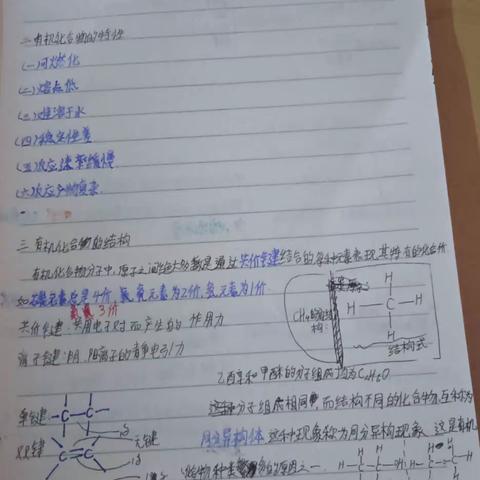 二 有机化合物的特性
(一)可燃化
(二)熔点低
(三)难溶于水
(四)稳定性差
(五)反应速率缓慢
(六)反应产物复杂
三 有机化合物的结构
有机化合物分子中,原子之间绝大多数是通过共价键结合的
如碳元素总是4价,氧 元素为2价,氢元素为1价
氮 3价
共价键:共用电子对而产生的 作用力
离子键:阴、阳离子的静电引力
CH4
结构
H
H—C—H
H
结构式
乙醇和甲醚的分子组成均为C2H6O
分子组成相同,而结构不同的化合物互称为
同分异构体 这种现象称为同分异构现象 这是有机
化合物种类繁多的原因之一
单键
—C—C—
双键
C=C
π键
H H